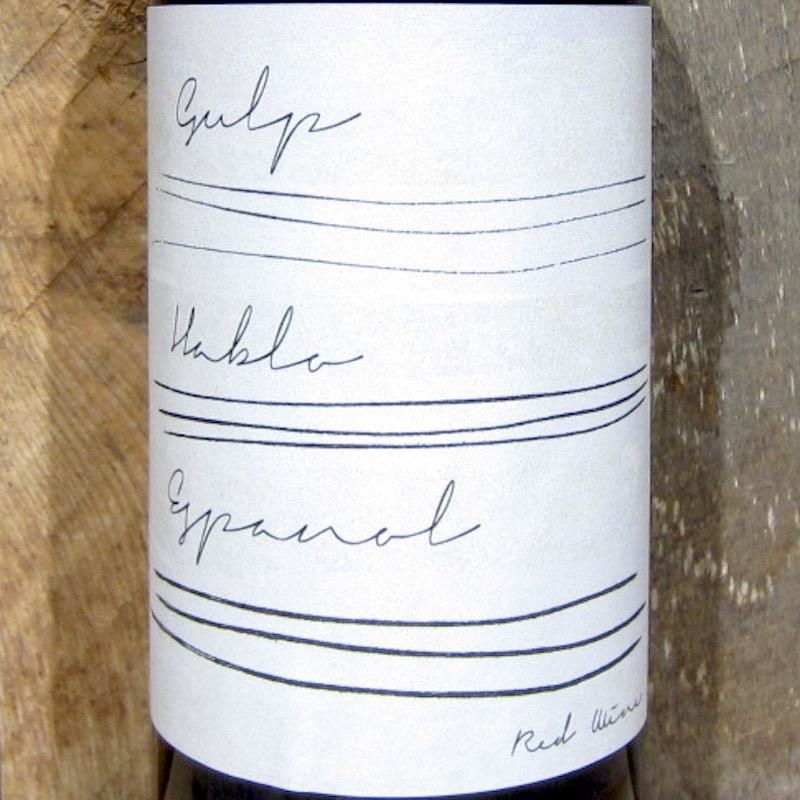 Gulp
Hablo
Espanol
Red Wine